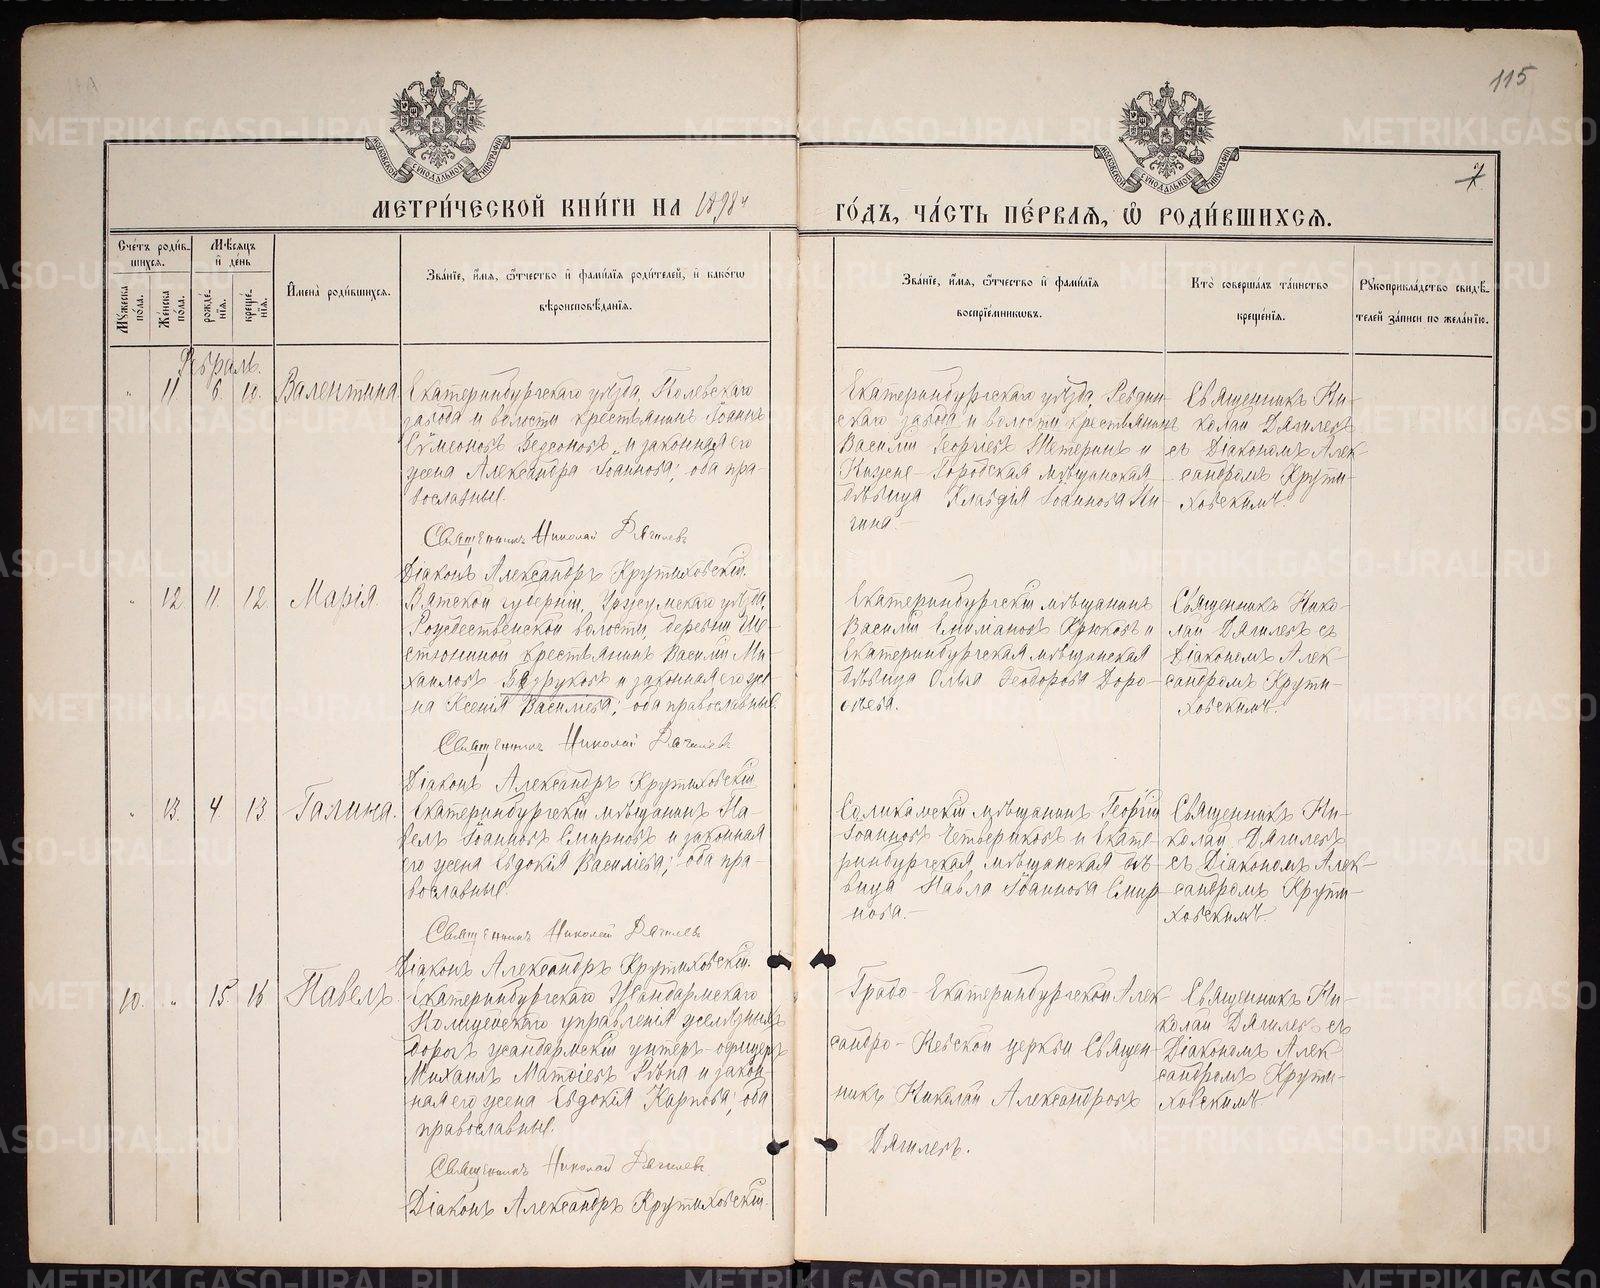 115
7
МОСКОВСКОЙ СѴНОДАЛЬНОЙ ТИПОГРАФІИ
МОСКОВСКОЙ СѴНОДАЛЬНОЙ ТИПОГРАФІИ
МЕТРИ́ЧЕСКОЙ КНИ́ГИ НА 1898 г
ГО́ДЪ, ЧА́СТЬ ПЕ́РВАѦ, Ѽ РОДИ́ВШИХСѦ.
Сче́тъ роди́в-
шихсѧ.
Мѣ́сѧцъ
и҆ де́нь
Мꙋ́жеска по́ла.
Же́нска по́ла.
рожде́-
нїѧ.
креще́-
нїѧ.
И҆мена̀ роди́вшихсѧ.
Зва́нїе, и҆́мѧ, ѻ҆́тчество и҆ фамѝлїѧ роди́телей, и҆ како́гѡ
вѣроисповѣ́данїѧ.
Зва́нїе, и҆́мѧ, ѻ҆́тчество и҆ фамѝлїѧ
воспрїе́мникѡвъ.
Кто̀ соверша́лъ та́инство
креще́нїѧ.
Рꙋкоприкла́дство свидѣ́-
телей за́писи по жела́нїю.
Февраль.
" 11 6. 10. Валентина
Екатеринбургскаго уѣзда, Полевскаго
завода и волости крестьянинъ Іоаннъ
Сѵмеоновъ и законная его
жена Александра Іоаннова; оба пра-
вославные.
Священникъ Николай Дягилевъ
Діаконъ Александръ Крутиховскій.
Екатеринбургскаго уѣзда, Ревдин-
скаго завода и волости крестьянинъ
Василій Георгіевъ и
Нижне-Городская мѣщанская
дѣвица Клавдія Іоаннова Ки-
гина.
Священникъ Ни-
колай Дягилевъ
съ Діакономъ Алек-
сандромъ Крути-
ховскимъ.
" 12 11. 12. Марія.
Вятской губерніи, Уржумскаго уѣзда,
Рождественской волости, деревни Ше-
стониной крестьянинъ Василій Ми-
хаиловъ Безруковъ и законная его же-
на Ксенія Василіева; оба православные
Священникъ Николай Дягилевъ
Діаконъ Александръ Крутиховскій
Екатеринбургскій мѣщанинъ
Василій Крюковъ и
Екатеринбургская мѣщанская
дѣвица Ольга Ѳеодорова Доро-
ѳеева.
Священникъ Нико-
лай Дягилевъ съ
Діакономъ Алек-
сандромъ Крути-
ховскимъ.
" 13. 4. 13 Галина.
Екатеринбургскій мѣщанинъ Па-
велъ Іоанновъ Смирновъ и законная
его жена Евдокія Василіева; оба пра-
вославные.
Священникъ Николай Дягилевъ
Діаконъ Александръ Крутиховскій.
Соликамскій мѣщанинъ Георгій
Іоанновъ Четвериковъ и Екате-
ринбургская мѣщанская дѣ-
вица Павла Іоаннова Смир-
нова.
Священникъ Ни-
колай Дягилевъ
съ Діакономъ Алек-
сандромъ Крути-
ховскимъ
10. " 15 16 Павелъ.
Екатеринбургскаго Жандармскаго
Полицейскаго управленія желѣзныхъ
дорогъ жандармскій унтеръ-офицеръ
Михаилъ Матѳіевъ Рѣпа и закон-
ная его жена Евдокія Карпова; оба
православные.
Священникъ Николай Дягилевъ
Діаконъ Александръ Крутиховскій.
Градо-Екатеринбургской Алек-
сандро-Невской церкви Священ-
никъ Николай Александровъ
Дягилевъ.
Священникъ Ни-
колай Дягилевъ съ
Діакономъ Алек-
сандромъ Крути-
ховскимъ
METRIKI.GASO-URAL.RU